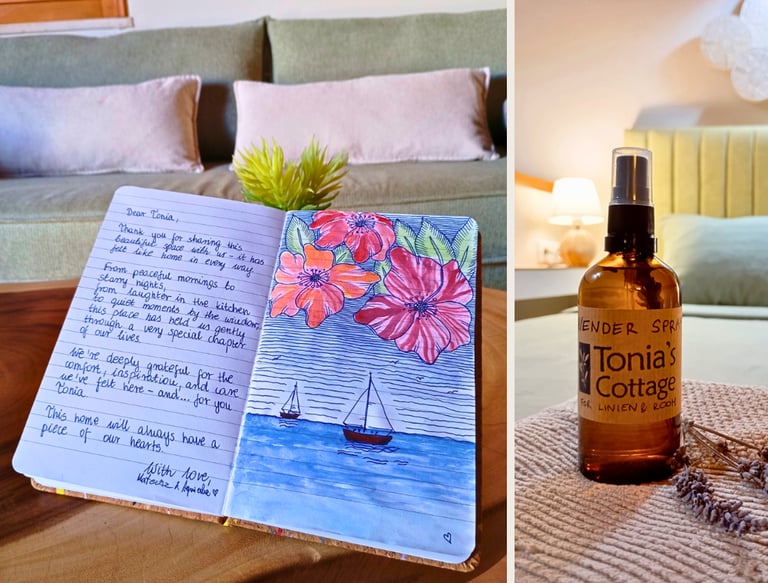 Dear Tonia,
Thank you for sharing this
beautiful space with us - it has
felt like home in every way.
From peaceful mornings to
starry nights,
from laughter in the kitchen
to quiet moments by the window,
this place has held us gently
through a very special chapter
of our lives.
We're deeply grateful for the
comfort, inspiration, and care
we've felt here - and... for you
Tonia.
This home will always have a
piece of our hearts.
With love,
VENDER SPRA
Tonia's
Cottage
FOR LINIEN & ROOM